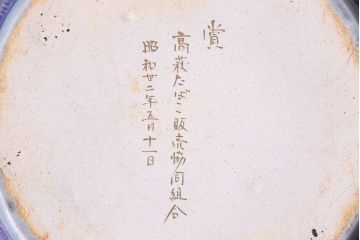 賞
高萩たばこ販売協同組合
昭和廿二年五月十一日